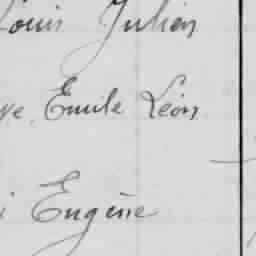 Louis Julien
Emile Léon
Eugène